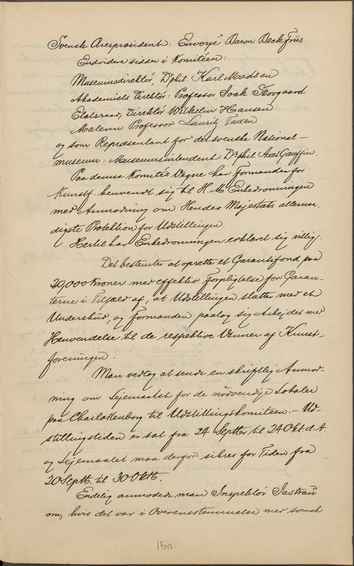 Svensk Ærespræsident: Envoyé Baron Beck Friis
Endvidere sidder i Komiteen:
Museumsdirektør, Dr phil. Karl Madsen
Akademiets Direktør: Professor Isak Skovgaard
Etatsraad, Direktør Wilhelm Hansen
Maleren Professor Laurits Tuxen
og som Repræsentant for det svenske National-
museum: Museumsintendent Dr phil Axel Gauffin.
Paa denne Komités Vegne har Formanden for
Kunstf. henvendt sig til H. M. Enkedronningen
med Anmodning om Hendes Majestæts allernaa-
digste Protektion for Udstillingen
Hertil har Enkedronningen erklæret sig villig.
Det besluttes at oprette et Garantifond paa
20,000 Kroner med effektiv Forpligtelse for Garan-
terne i Tilfælde af, at Udstillingen slutter med et
Underskud, og Formanden paatog sig Arbejdet med
Henvendelse til de respektive Venner af Kunst-
foreningen.
Man vedtog at sende en skriftlig Anmod-
ning om Lejemaalet for de nødvendige Lokaler
paa Charlottenborg til Udstillingskomiteen. Ud-
stillingstiden er sat fra 24 Septbr til 24 Okt d. A.
og Lejemaalet maa derfor sikres for Tiden fra
20 Septb. til 30 Oktb.
Endelig anmodede man Inspektør
om, hvis det var i Overensstemmelse med